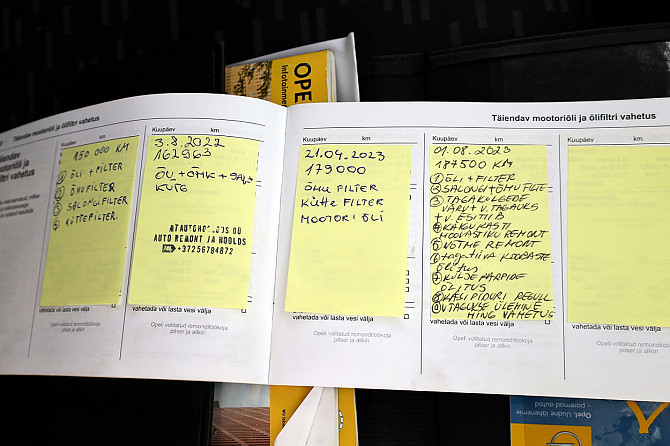 OPE
Infotainme
Täiendav mootoriõli ja õlifiltri vahetus
Täiendav mootoriõli ja õlifiltri vahetus
Kuupäev km
150 000 KM
① ÕLI + FILTER
② ÕHUFILTER
③ SALONGIFILTER
④ KÜTTEFILTER
vahetada või lasta vesi välja
Opeli volitatud remonditöökoja
pitser ja allkiri
Kuupäev km
3.8.2022
162963
ÕLI + ÕHK + SALG
KÜTE
AUTO REMONT JA HOOLDS
+37256784872
vahetada või lasta vesi välja
Opeli volitatud remonditöökoja
pitser ja allkiri
Kuupäev km
21.04.2023
179000
ÕHU FILTER
KÜTTE FILTER
MOOTORI ÕLI
vahetada või lasta vesi välja
Opeli volitatud remonditöökoja
pitser ja allkiri
Kuupäev km
01.08.2023
187500 KM
① ÕLI + FILTER
② SALONGI + ÕHU FILTE
③ TAGAKÜLGEDE
VÄRV + V. TAGAUKS
+ V. ESITIIB
④ KÄIGUKASTI
HOOVASTIKU REMONT
⑤ VÕTME REMONT
⑥ tagatiiva KOOBASTE
ÕLITUS
⑦ KÜLJEKARPIDE
ÕLITUS
⑧ KÄSIPIDURI REGULL
⑨ V.TAGUKSE ÜLEMINE
MING VAHETUS
vahetada või lasta vesi välja
Opeli volitatud remonditöökoja
pitser ja allkiri
Kuupäev km
vahetada või lasta vesi välja
Opeli volitatud remonditöökoja
pitser ja allkiri
Opel. Uudne lähenemine
paremad autod